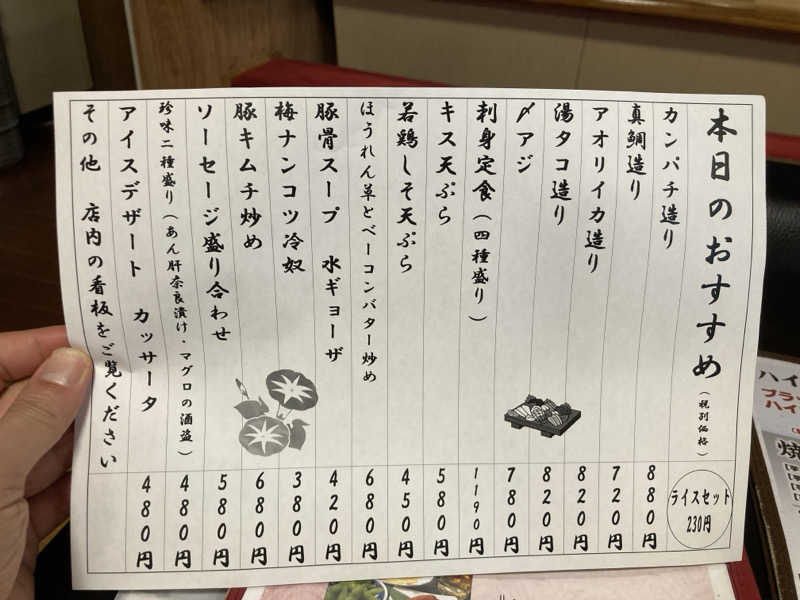 本日のおすすめ（税別価格）
ライスセット
230円
カンパチ造り 880円
真鯛造り 720円
アオリイカ造り 820円
湯タコ造り 820円
〆アジ 780円
刺身定食（四種盛り） 1190円
キス天ぷら 580円
若鶏しそ天ぷら 450円
ほうれん草とベーコンバター炒め 680円
豚骨スープ 水ギョーザ 420円
梅ナンコツ冷奴 380円
豚キムチ炒め 680円
ソーセージ盛り合わせ 580円
珍味二種盛り（あん肝奈良漬け・マグロの酒盗） 480円
アイスデザート カッサータ 480円
その他 店内の看板をご覧ください
ハイ
ブラッ
ハイ
焼